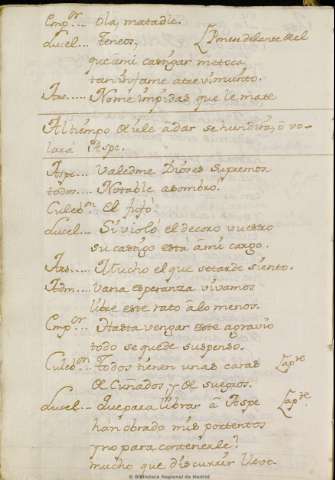 Emp.or.... Ola, matadle.
Lucel.... Teneos, [Ponese delante del
que a mi castigar me toca
tan infame atrevimiento.
Ars.... No me impidas que le mate
Al tiempo de irle a dar se hundirá, ò vo-
lará Aspe.
Aspe.... Valedme Dioses supremos
todos.... Notable asombro!
Culeb.n El fufó!
Lucel.... Si violó el decoro vuestro
su castigo está à mi cargo.
Ars.... Mucho el que se tarde siento.
Adm.... Vana esperanza vivamos
libre este rato à lo menos.
Emp.or... Hasta vengar este agravio
todo se quede suspenso.
Culeb.n Todos tienen unas caras [ap.te
de Cuñados, y de suegros.
Lucel.... Que para librar à Aspe [ap.te
han obrado mis portentos
y no para contenerle?
mucho que discurrir
© Biblioteca Nacional de Madrid